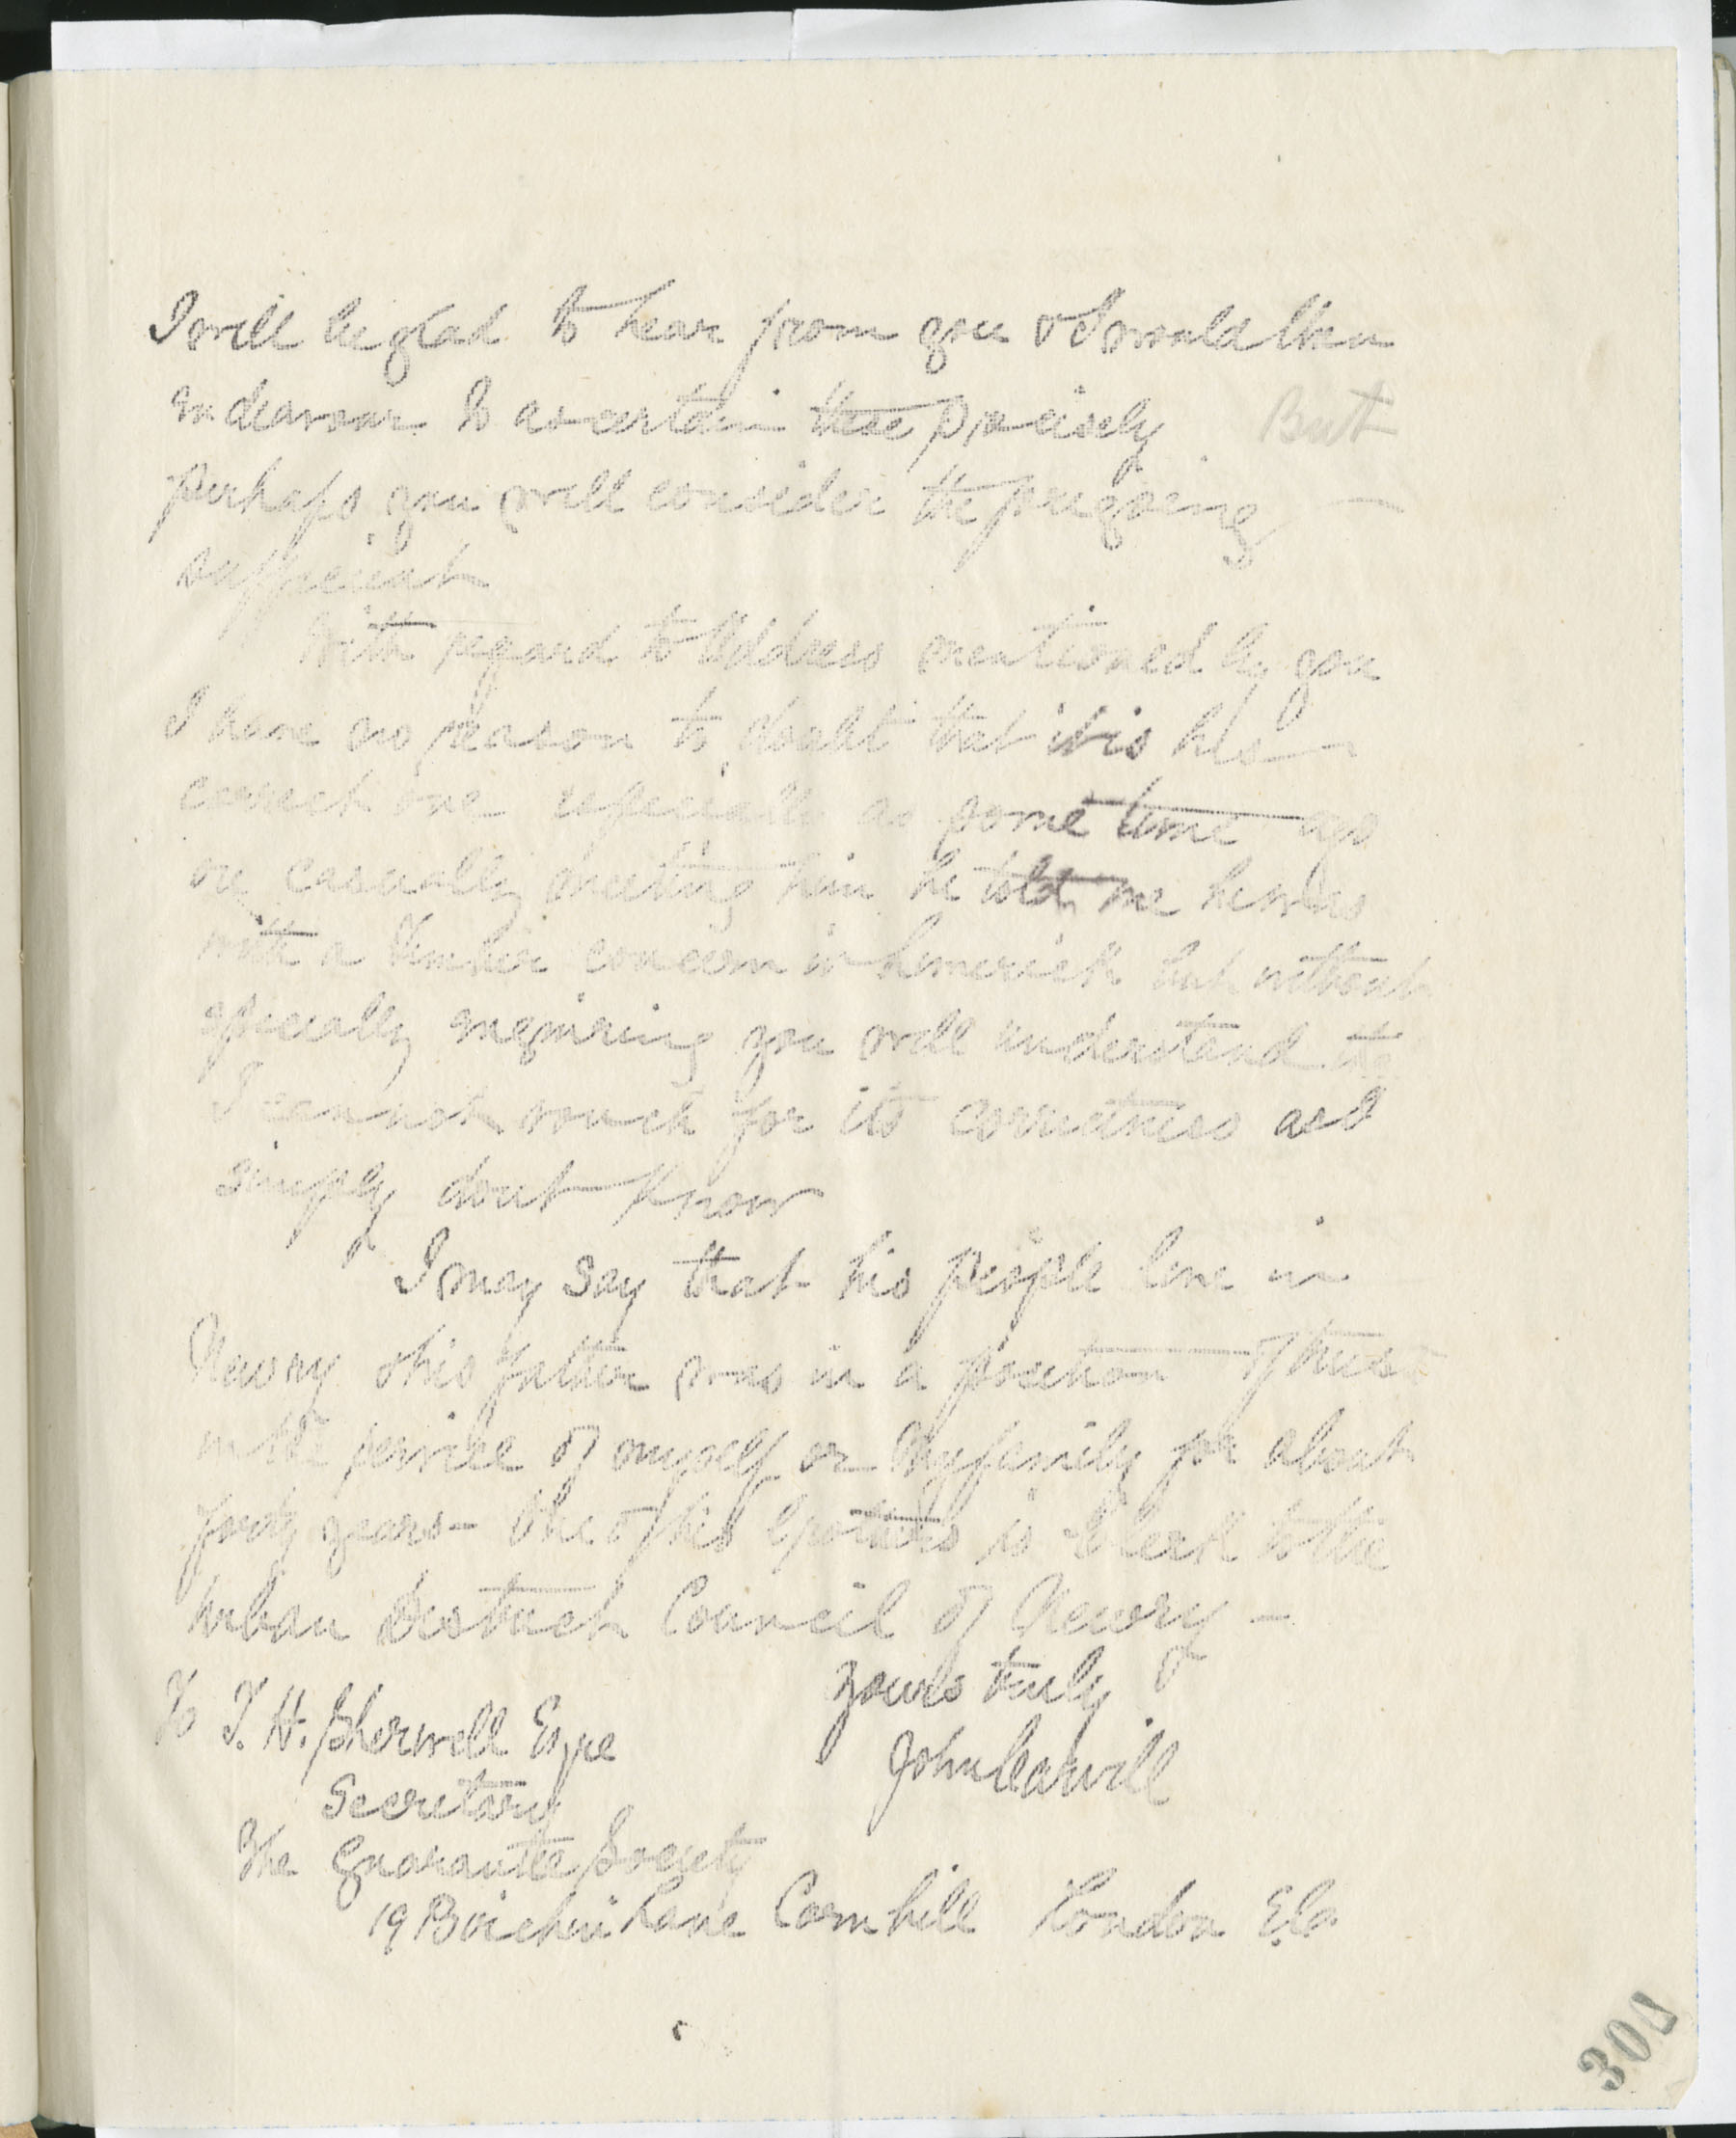 I will be glad to hear from you & I would then
endeavour to ascertain these precisely But
perhaps you will consider the foregoing —
sufficient
With regard to address mentioned by you
I have no reason to doubt that it is his —
correct one especially as some time ago
on casually meeting him he told me he was
with a Timber concern in Limerick but without
specially enquiring you will understand
I cannot vouch for its correctness as I
simply dont know
I may say that his people live in
Newry & his father was in a position of trust
in the service of myself or my family for about
forty years – One of his brothers is Clerk to the
Urban District Council of Newry –
Yours truly
John Carvill
To T. H. Sherwell Esqre
Secretary
The Guarantee Society
19 Birchin Lane Cornhill London E.C.